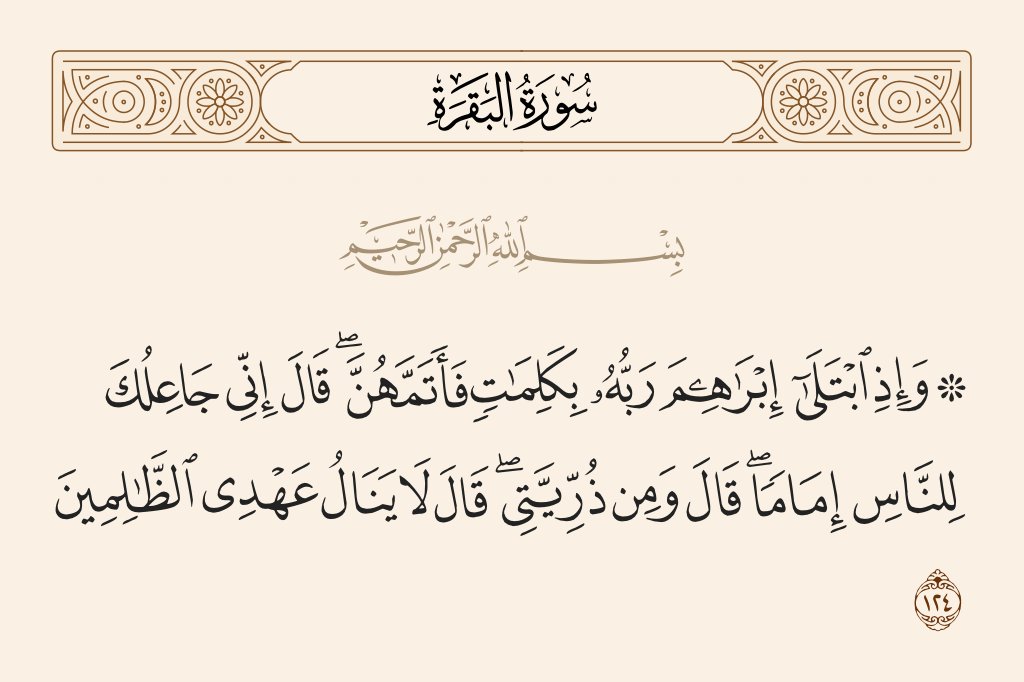 سُورَةُ الْبَقَرَةِ
بِسْمِ ٱللَّهِ ٱلرَّحْمَٰنِ ٱلرَّحِيمِ
۞ وَإِذِ ٱبْتَلَىٰٓ إِبْرَٰهِـۧمَ رَبُّهُۥ بِكَلِمَٰتٍ فَأَتَمَّهُنَّ ۖ قَالَ إِنِّى جَاعِلُكَ
لِلنَّاسِ إِمَامًا ۖ قَالَ وَمِن ذُرِّيَّتِى ۖ قَالَ لَا يَنَالُ عَهْدِى ٱلظَّٰلِمِينَ
١٢٤